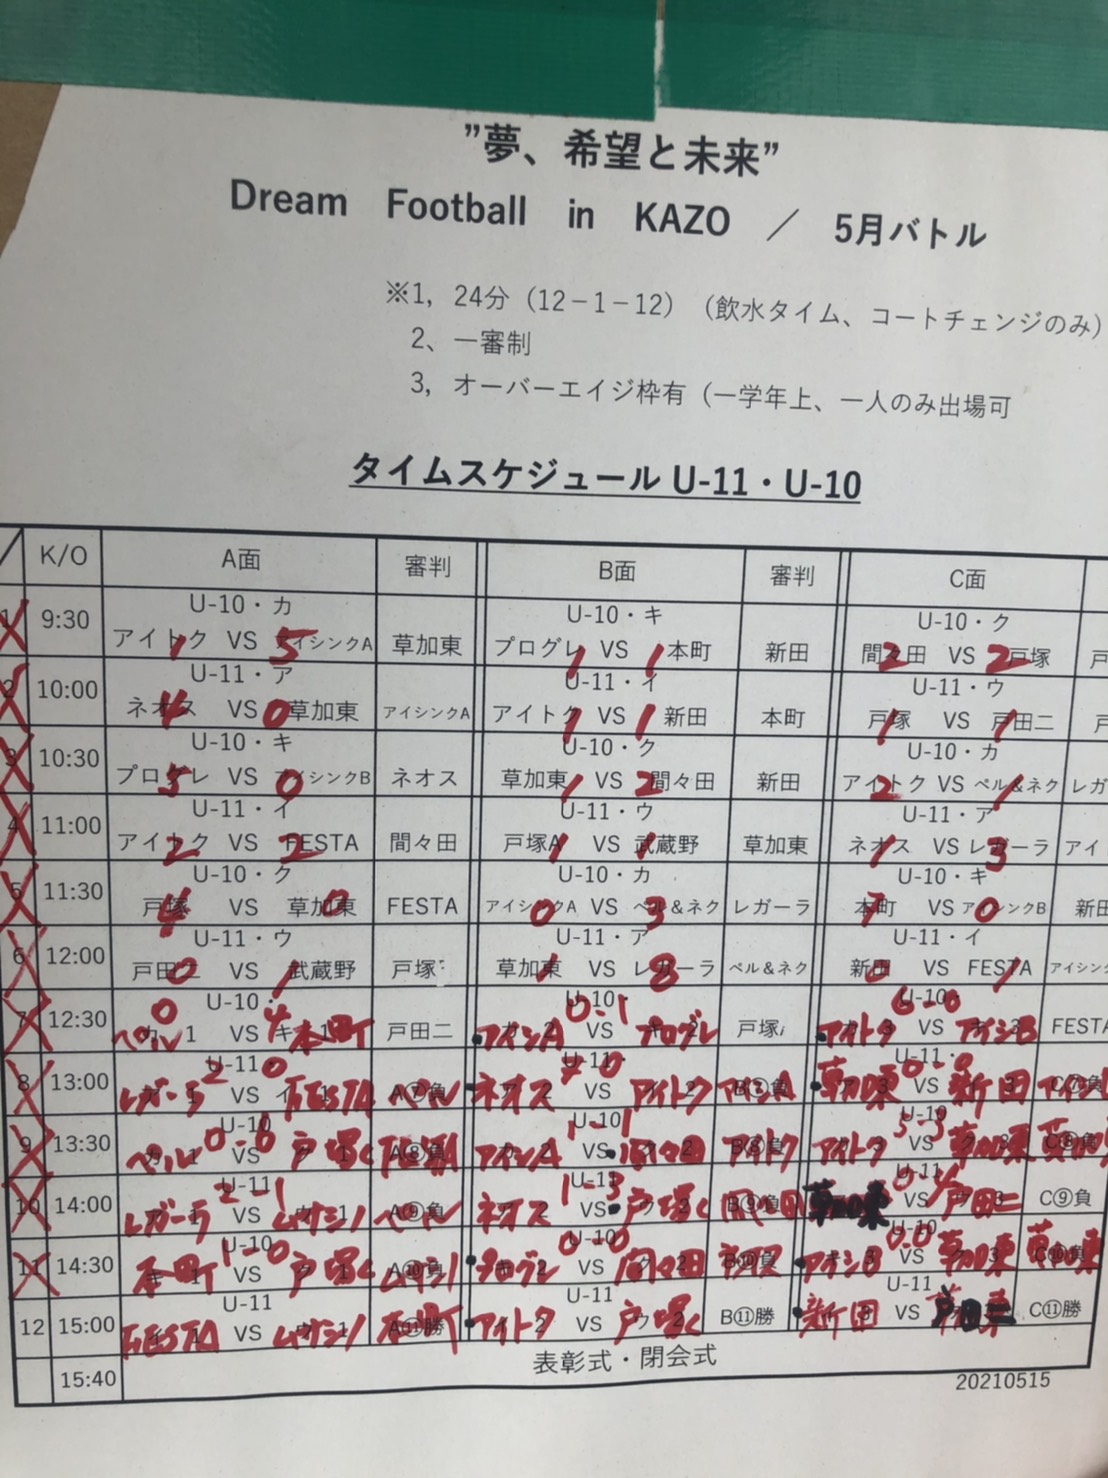 ”夢、希望と未来”
Dream Football in KAZO ／ 5月バトル
※1, 24分（12－1－12）（飲水タイム、コートチェンジのみ）
2、一審制
3, オーバーエイジ枠有（一学年上、一人のみ出場可
タイムスケジュール U-11・U-10
K/O A面 審判 B面 審判 C面
1 9:30 U-10・カ U-10・キ U-10・ク
アイトク 1 VS 5 アイシンクA 草加東 プログレ 1 VS 1 本町 新田 間々田 2 VS 2 戸塚 戸
2 10:00 U-11・ア U-11・イ U-11・ウ
ネオス 4 VS 0 草加東 アイシンクA アイトク 1 VS 1 新田 本町 戸塚 1 VS 1 戸田二 戸
3 10:30 U-10・キ U-10・ク U-10・カ
プログレ 5 VS 0 アイシンクB ネオス 草加東 1 VS 2 間々田 新田 アイトク 2 VS 1 ベル&ネク レガ
4 11:00 U-11・イ U-11・ウ U-11・ア
アイトク 2 VS 2 FESTA 間々田 戸塚A 1 VS 1 武蔵野 草加東 ネオス 1 VS 3 レガーラ アイ
5 11:30 U-10・ク U-10・カ U-10・キ
戸塚 4 VS 0 草加東 FESTA アイシンクA 0 VS 3 ベル&ネク レガーラ 本町 7 VS 0 アイシンクB 新田
6 12:00 U-11・ウ U-11・ア U-11・イ
戸田二 0 VS 1 武蔵野 戸塚 草加東 1 VS 8 レガーラ ベル&ネク 新田 VS 1 FESTA アイシンク
7 12:30 U-10・ U-10・ U-10・
ベル 0 VS 4 本町 戸田二 アイシンA 0-1 VS プログレ 戸塚 アイトク 6-0 VS アイシB FESTA
8 13:00 U-11・ U-11・ U-11・
レガーラ 2 VS 0 FESTA A⑦負 ネオス VS アイトク B⑦負 草加東 0-0 VS 新田 C⑦負
9 13:30 U-10 U-10 U-10
ベル 0-0 VS 戸塚 A⑧負 アイシンA 1-1 VS 間々田 B⑧負 アイトク 5-3 VS 草加東 C⑧負
10 14:00 U-11 U-11 U-11
レガーラ 2-1 VS ムサシノ A⑨負 ネオス 1-3 VS 戸塚 B⑨負 VS 戸田二 C⑨負
11 14:30 U-10 U-10 U-10
本町 1-0 VS 戸塚 A⑩負 プログレ 0-0 VS 間々田 B⑩負 アイシB 0-0 VS 草加東 C⑩負 草加東
12 15:00 U-11 U-11 U-11
FESTA VS ムサシノ A⑪勝 アイトク VS 戸塚 B⑪勝 新田 VS C⑪勝
15:40 表彰式・閉会式
20210515